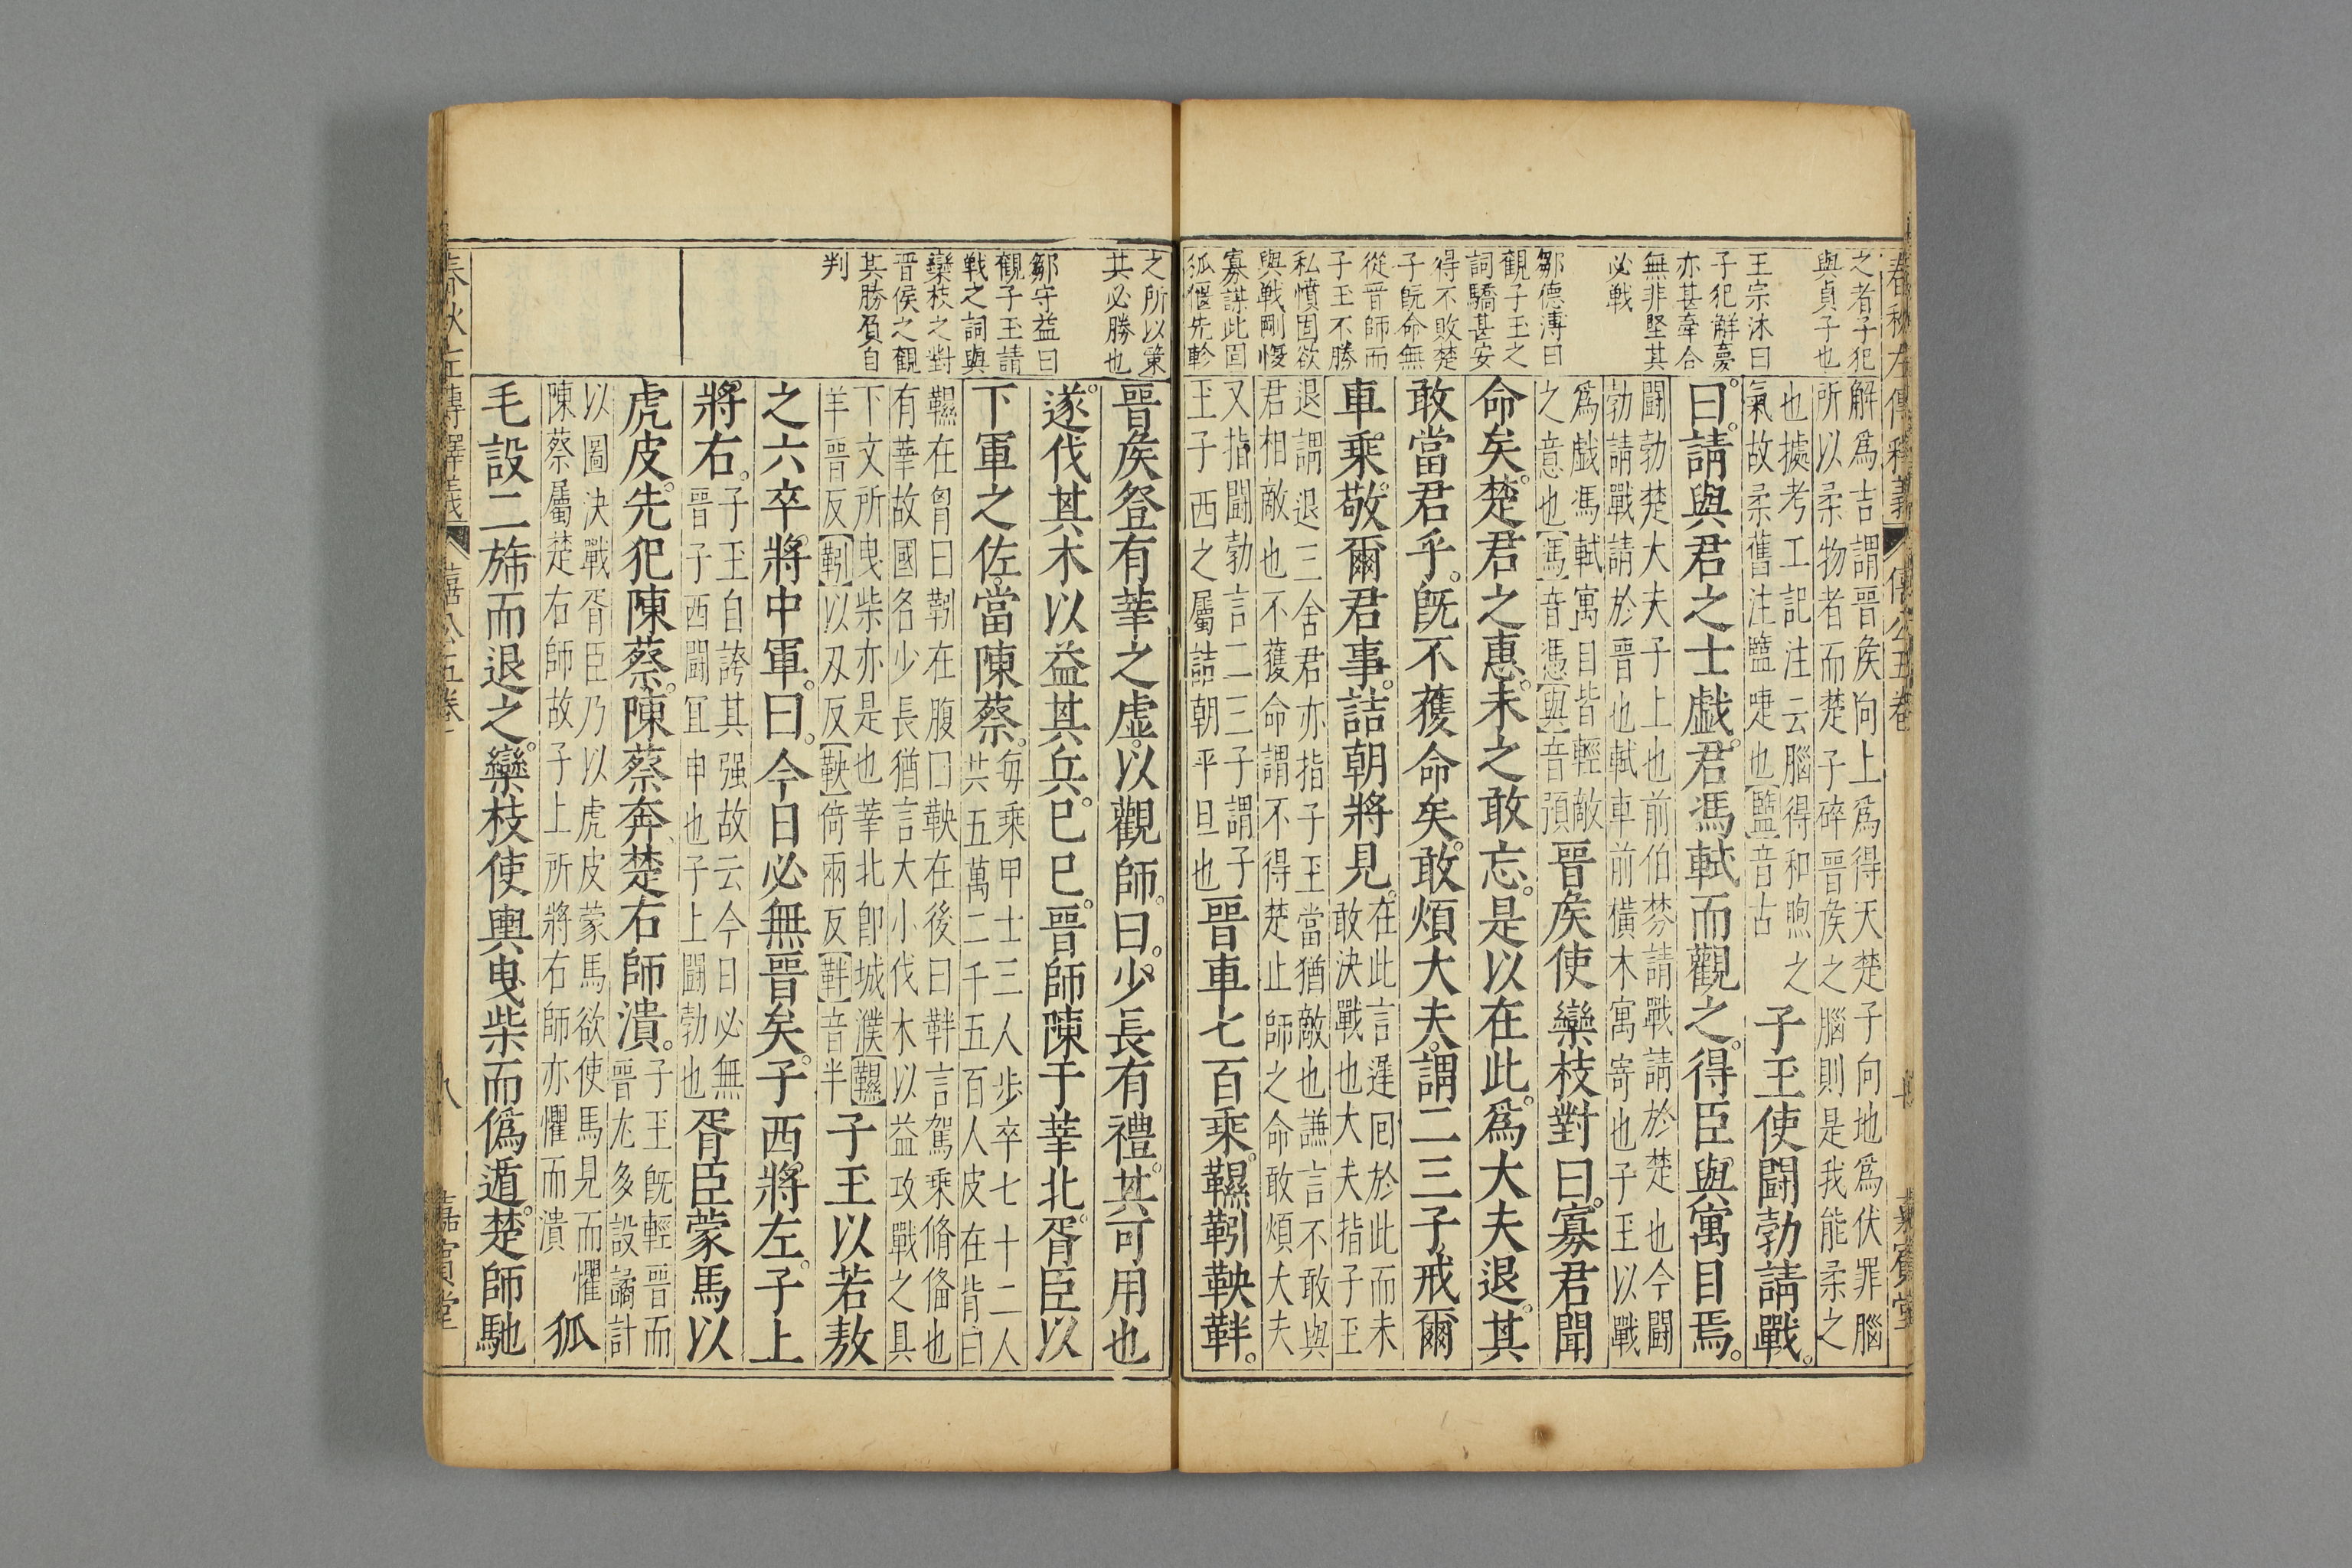 春秋左傳釋義 僖公五卷 嘉賓堂
之者子犯
與貞子也
王宗沐曰
子犯解夢
亦甚牽合
無非堅其
必戰
鄒德溥曰
觀子玉之
詞驕甚安
得不敗楚
子旣命無
從晉師而
子玉不勝
私憤固欲
與戰剛愎
寡謀此固
狐偃先軫
解爲吉謂晉侯向上爲得天楚子向地爲伏罪腦
所以柔物者而楚子碎晉侯之腦則是我能柔之
也據考工記注云腦得和煦之
氣故柔舊注盬啑也【盬】音古
子玉使鬭勃請戰。
曰。請與君之士戲。君馮軾而觀之。得臣與寓目焉。
鬭勃楚大夫子上也前伯棼請戰請於楚也今鬭
勃請戰請於晉也軾車前橫木寓寄也子玉以戰
爲戲馮軾寓目皆輕敵
之意也【馮】音憑【與】音預
晉侯使欒枝對曰。寡君聞
命矣。楚君之惠。未之敢忘。是以在此。爲大夫退。其
敢當君乎。旣不獲命矣。敢煩大夫。謂二三子。戒爾
車乘。敬爾君事。詰朝將見。
在此言遲囘於此而未
敢決戰也大夫指子玉
退謂退三舍君亦指子玉當猶敵也謙言不敢與
君相敵也不獲命謂不得楚止師之命敢煩大夫
又指鬭勃言二三子謂子
玉子西之屬詰朝平旦也
晉車七百乘。韅靷鞅靽。
之所以策
其必勝也
鄒守益曰
觀子玉請
戰之詞與
欒枝之對
晉侯之觀
其勝負自
判
晉侯登有莘之虛。以觀師。曰。少長有禮。其可用也
遂。伐其木以益其兵。已巳。晉師陳于莘北。胥臣以
下軍之佐。當陳蔡。
每乘甲士三人步卒七十二人
共五萬二千五百人皮在背曰
韅在胷曰靷在腹曰鞅在後曰靽言駕乘脩備也
有莘故國名少長猶言大小伐木以益攻戰之具
下文所曳柴亦是也莘北卽城濮【韅】
羊晉反【靷】以刄反【鞅】倚兩反【靽】音半
子玉以若敖
之六卒。將中軍。曰。今日必無晉矣。子西將左。子上
將右。
子玉自誇其强故云今日必無
晉子西鬭冝申也子上鬭勃也
胥臣蒙馬以
虎皮。先犯陳蔡。陳蔡奔。楚右師潰。
子玉旣輕晉而
晉尤多設譎計
以圖決戰胥臣乃以虎皮蒙馬欲使馬見而懼
陳蔡屬楚右師故子上所將右師亦懼而潰
狐
毛設二旆而退之。欒枝使輿曳柴而僞遁。楚師馳
春秋左傳釋義 僖公五卷 八 嘉賓堂